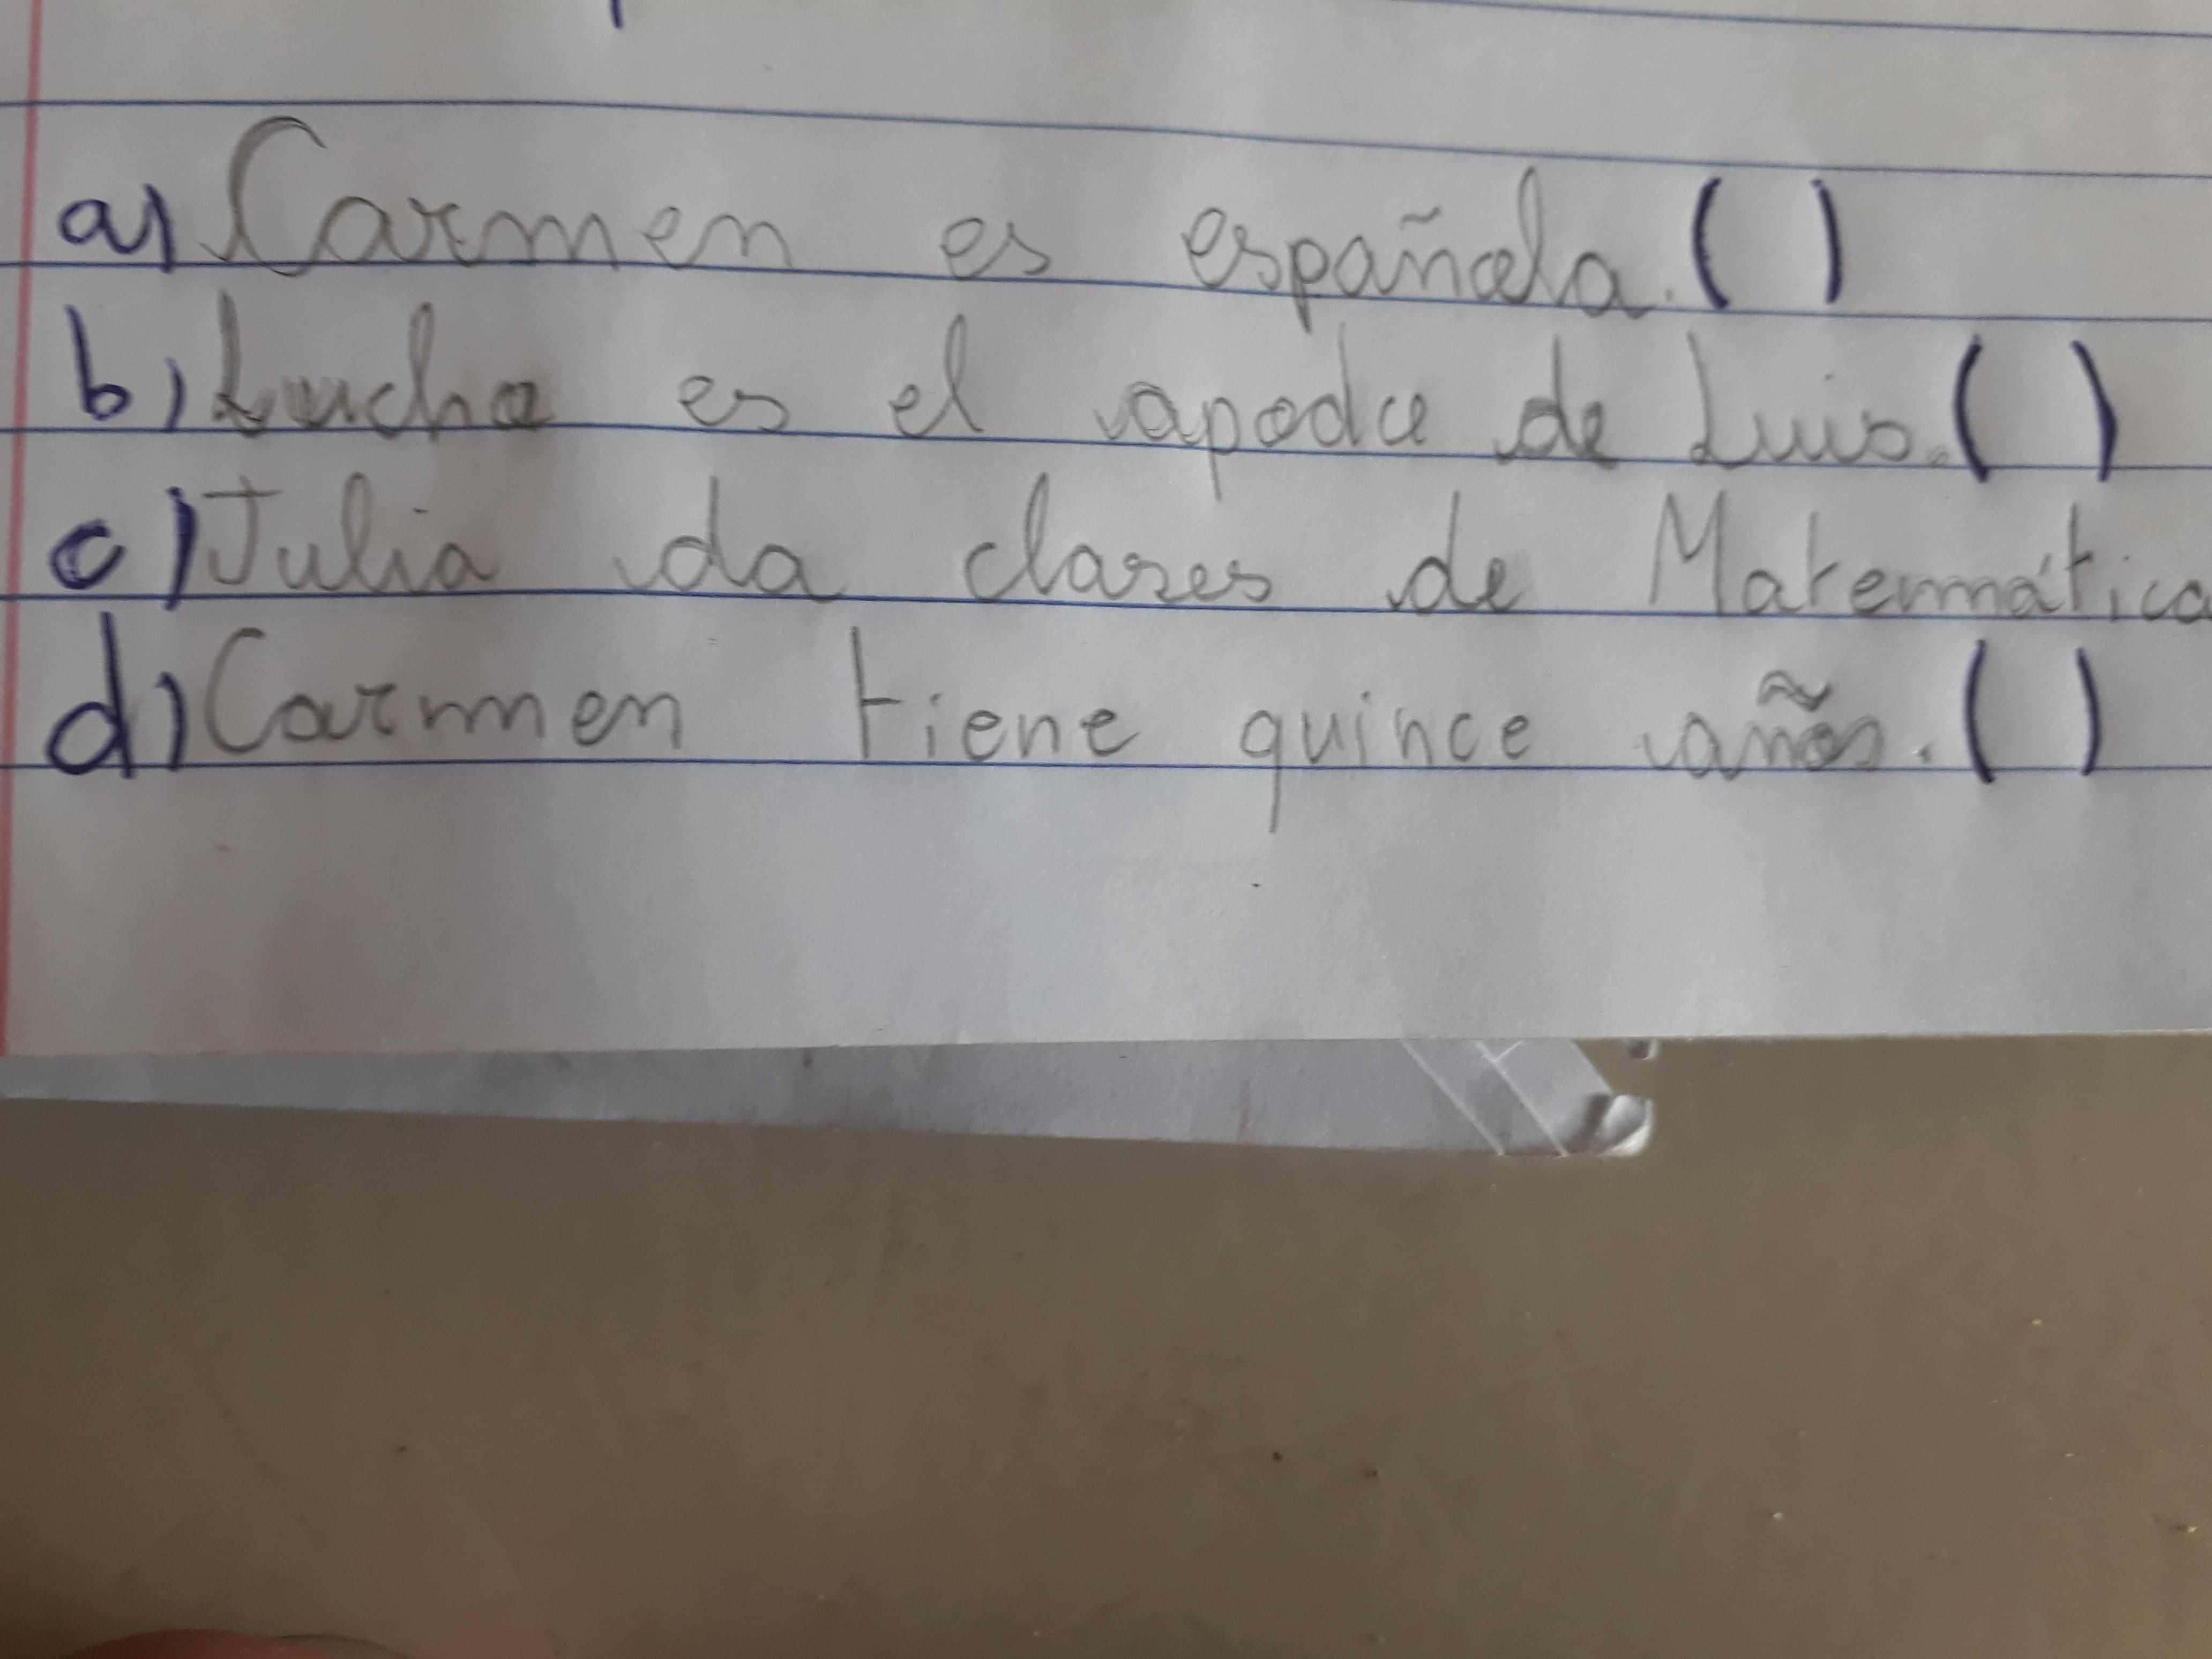 a) Carmen es española. ( )
b) Lucho es el apodo de Luis. ( )
c) Julia da clases de Matemática
d) Carmen tiene quince años. ( )